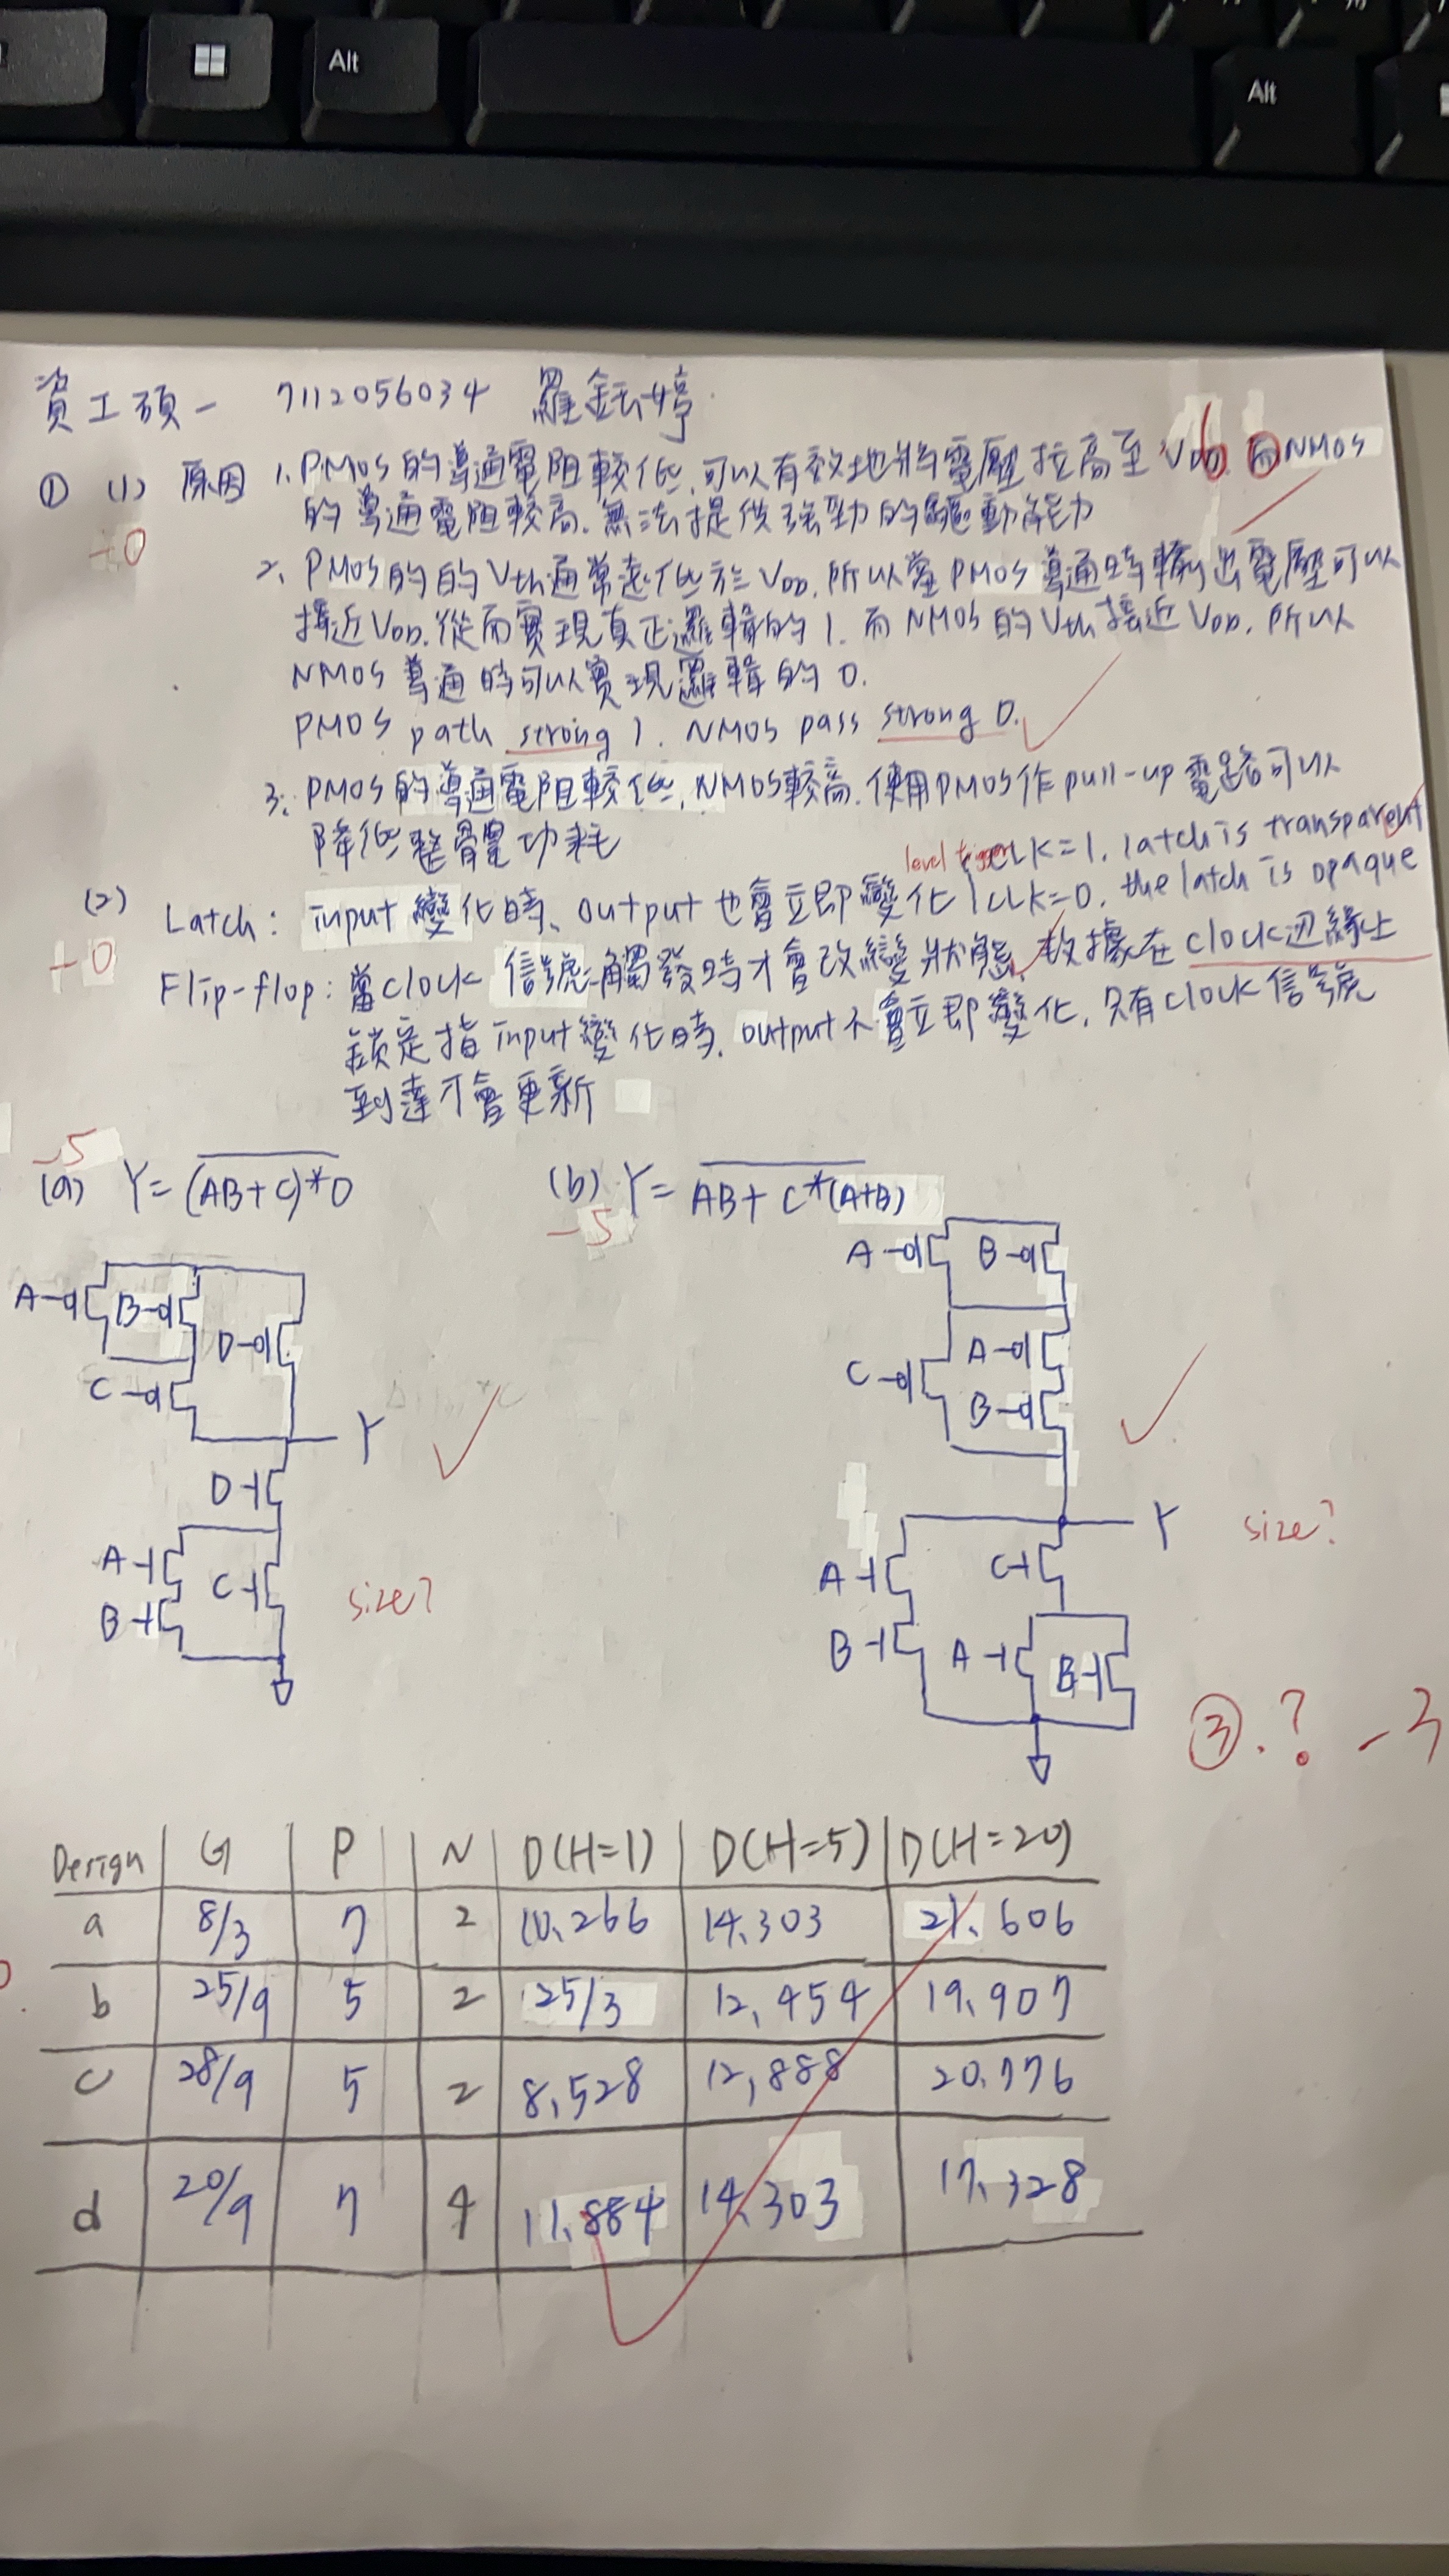 Alt
Alt
資工碩一 7112056034 羅鈺婷
① (1) 原因 1. PMOS的導通電阻較低,可以有效地將電壓拉高至VDD 而NMOS
的導通電阻較高.無法提供強勁的驅動能力
-0
2. PMOS的的Vth通常是低於VDD.所以當PMOS導通時輸出電壓可以
接近VDD.從而實現真正邏輯的1.而NMOS的Vth接近VDD.所以
NMOS導通時可以實現邏輯的0.
PMOS path strong 1. NMOS pass strong 0.
3. PMOS的導通電阻較低,NMOS較高.使用PMOS作pull-up電路可以
降低整體功耗
level CLK=1. latch is transparent
(2) Latch: input變化時、output也會立即變化 CLK=0. the latch is opaque
-0
Flip-flop:當clock信號觸發時才會改變狀態,數據在clock边緣上
鎖定指input變化時.output不會立即變化,只有clock信號
到達才會更新
-5
(a) Y=(AB+C)*D (b) Y= AB+C*(A+B)
-5
A B D C
Y
D
A C
B
size?
A B
C A
B
Y size?
A C
B A B
③.? -3
Design G P N D(H=1) D(H=5) D(H=20)
a 8/3 7 2 10.266 14.303 21.606
b 25/9 5 2 25/3 12,454 19.907
c 28/9 5 2 8,528 12,888 20.776
d 20/9 7 4 11.884 14.303 17.328